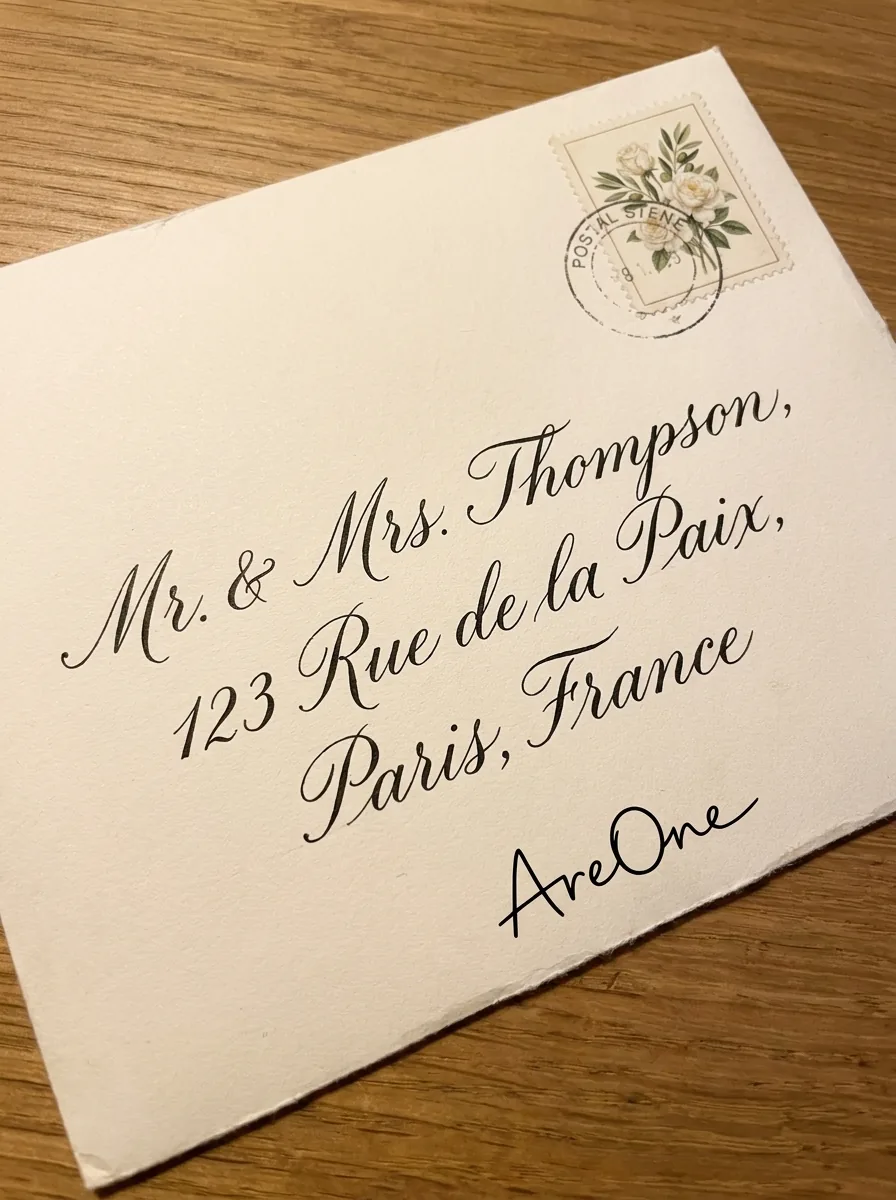 POSTAL STENE
Mr. & Mrs. Thompson,
123 Rue de la Paix,
Paris, France
AreOne